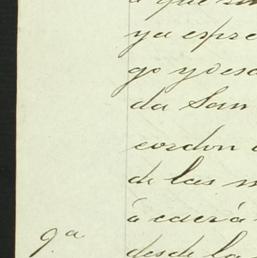 ya espre
go y desd
da San
cordon
de las m
á caerá
9.ª
desde la